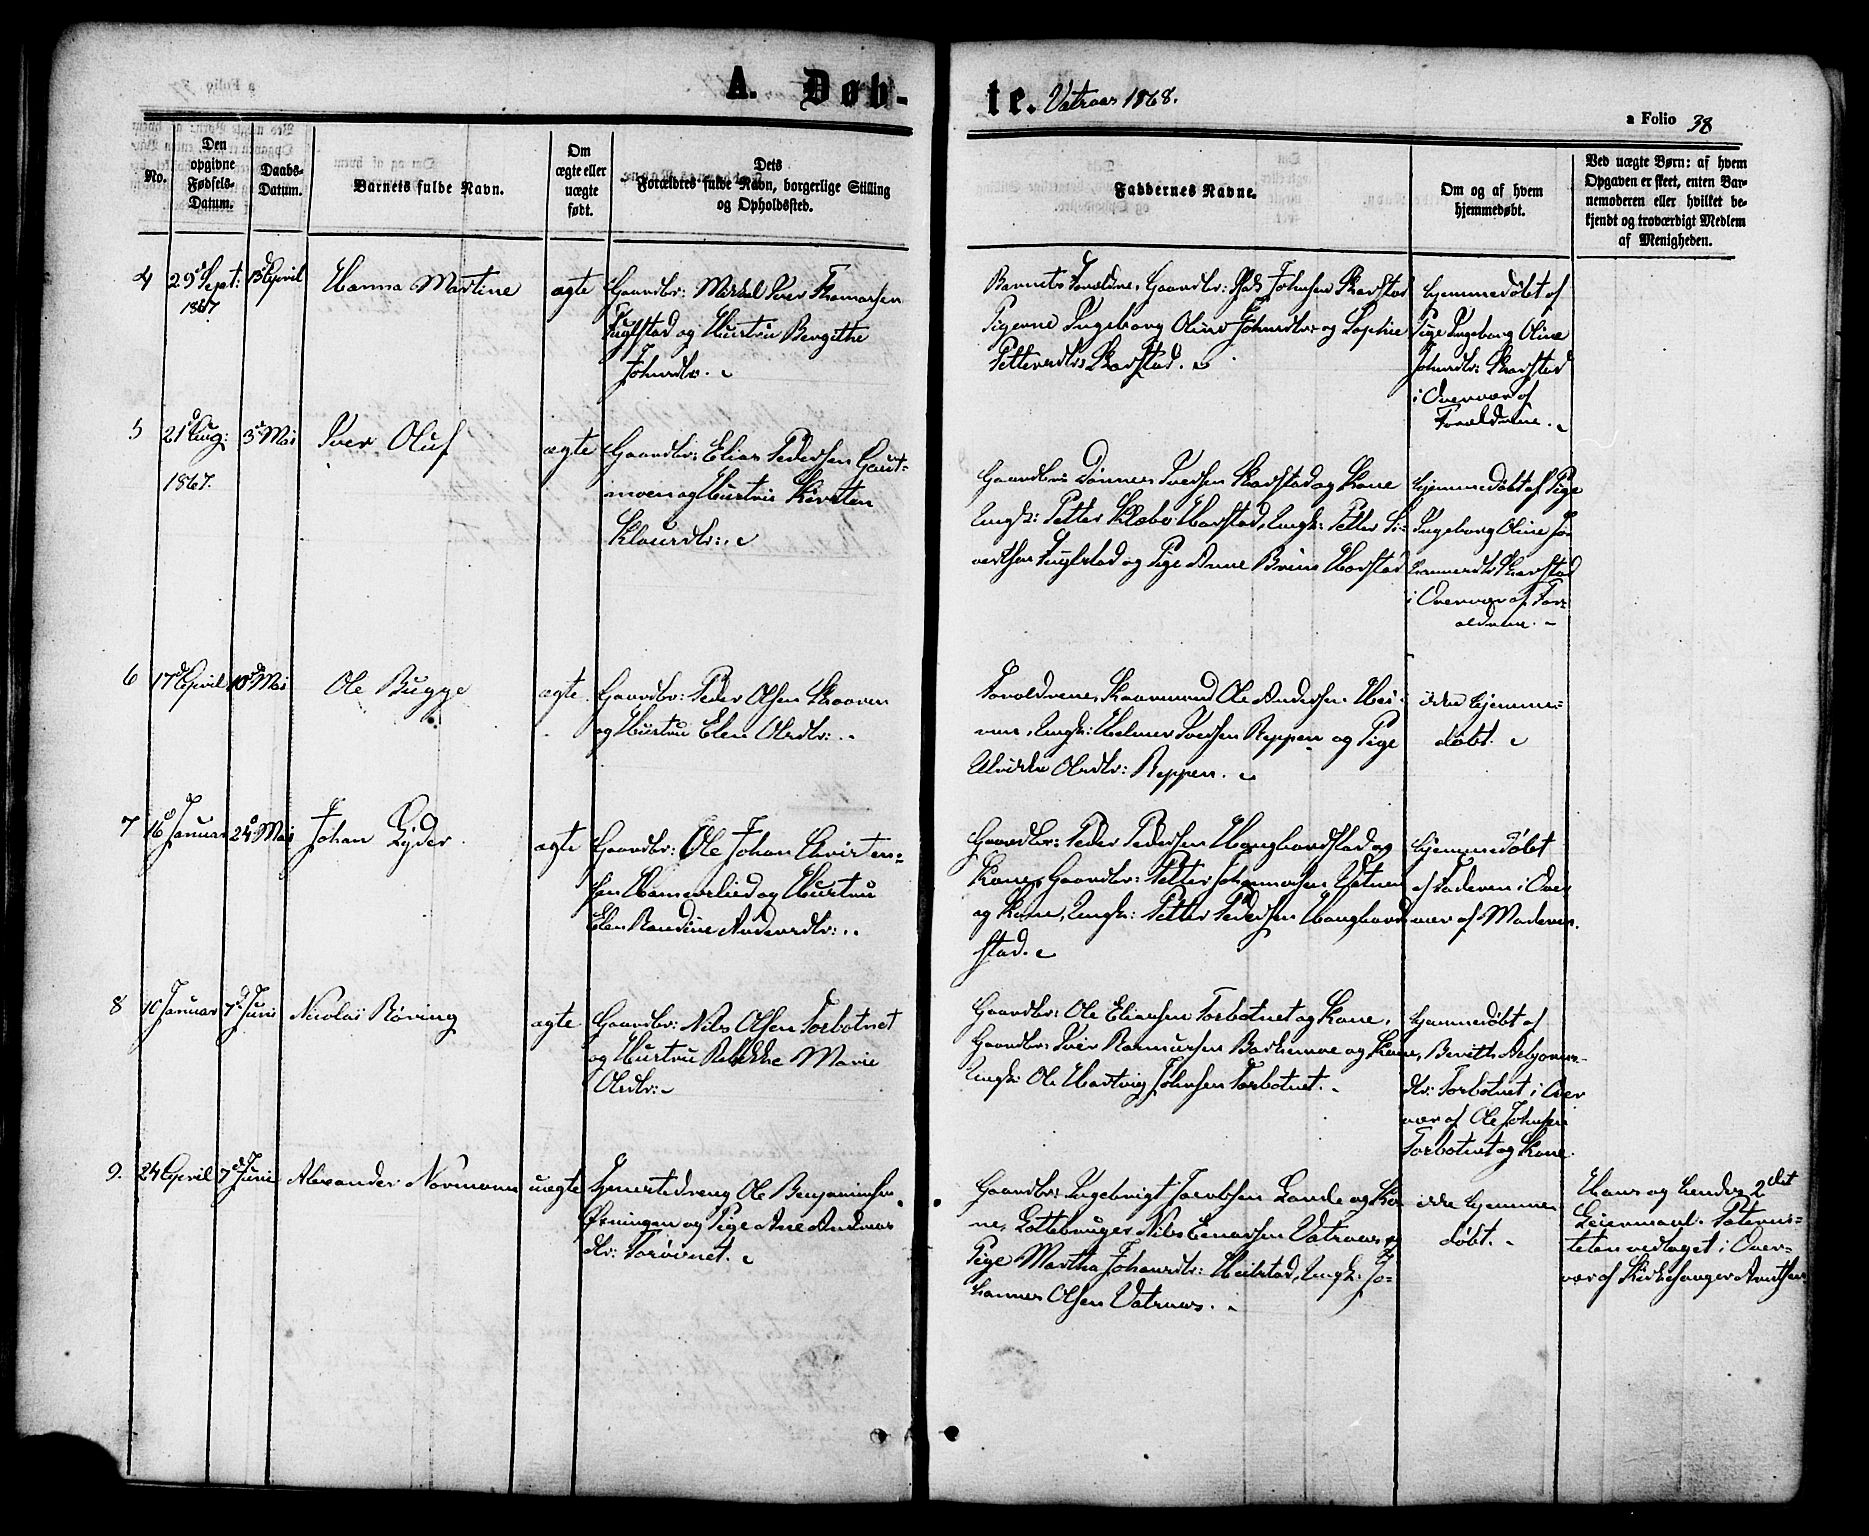 A. Døb-
te. Vatnaas 1868.
a Folio 38
No.
Den
opgivne
Fødsels-
Datum.
Daabs-
Datum.
Barnets fulde Navn.
Om
ægte eller
uægte
født.
Dets
Forældres fulde Navn, borgerlige Stilling
og Opholdssted.
Faddernes Navne.
Om og af hvem
hjemmedøbt.
Ved uægte Børn: af hvem
Opgaven er skeet, enten Bar-
nemoderen eller hvilket be-
kjendt og troværdigt Medlem
af Menigheden.
4
29d Sept:
1867
13d April
Hanna Martine
ægte
Gaardbr: Mikkel Iver Thomassen
Fuglstad og Hustru Bergithe
Johnsdtr.
Barnets Forældre, Gaardbr: John Skarstad
Pigerne Ingeborg Oline Johnsdtr: og Sophie
Pettersdtr: Skarstad.
hjemmedøbt af
Pige Ingeborg Oline
Johnsdtr: Skarstad
i Overvær af
Forældrene.
5
21d Aug:
1867.
3d Mai
Iver Oluf
ægte
Gaardbr: Elias Pedersen
og Hustru Kirsten
Klausdtr:.
Gaardbr: Tønnes Iversen Skarstad og Kone
Ungk: Petter Klæbo Harstad, Ungk: Petter Si-
vertsen Fuglstad og Pige Anne Harstad
hjemmedøbt af Pige
Ingeborg Oline Jo-
hannesdtr Skarstad
i Overvær af For-
ældrene.
6
17d April
10d Mai
Ole Bugge
ægte
Gaardbr: Peder Olsen Skaaren
og Hustru Elen Olsdtr:.
Forældrene, Ole Andersen
Ungk: Helmer Iversen Reppen og Pige
Olsdtr: Reppen.
ikke hjemme-
døbt.
7
16d Januar
24d Mai
Johan Lyder
ægte
Gaardbr: Ole Johan Christen-
sen Hammerlied og Hustru
Elen Randine Andersdtr:.
Gaardbr: Peder Pedersen Hanghardstad og
Kone, Gaardbr: Petter Johannesen Vatnen
og Kone, Ungk: Petter Pedersen Hanghard-
stad.
hjemmedøbt
af Faderen i Over-
vær af Moderen.
8
10 Januar
7d Juni
Nicolai Røring
ægte
Gaardbr: Nils Olsen Torbotnet
og Hustru Rebekka Marie
Olsdtr:
Gaardbr: Ole Eliassen Torbotnet og Kone,
Gaardbr: Iver Rasmussen Bakkemoe og Kone,
Ungk: Ole Hartvig Johnsen Torbotnet.
hjemmedøbt af
Berith
dtr: Torbotnet i Over-
vær af Ole Johnsen
Torbotnet og Kone.
9.
24 April
7d Juni
Alexander Normann
uægte
Tjenestedreng Ole Benjaminsen
Øxningen og Pige Ane Andreas-
dtr: Torvirnet.
Gaardbr: Ingebrigt Jacobsen Lande og Ko-
ne, Nils Einarsen Vatnaas og
Pige Martha Johansdtr: Heilstad, Ungk: Jo-
hannes Olsen Vatnaas.
ikke hjemme-
døbt.
Hans og hendes 2det
Leiermaal. Paterni-
teten vedtaget i Over-
vær af Kirkesanger Arntsen